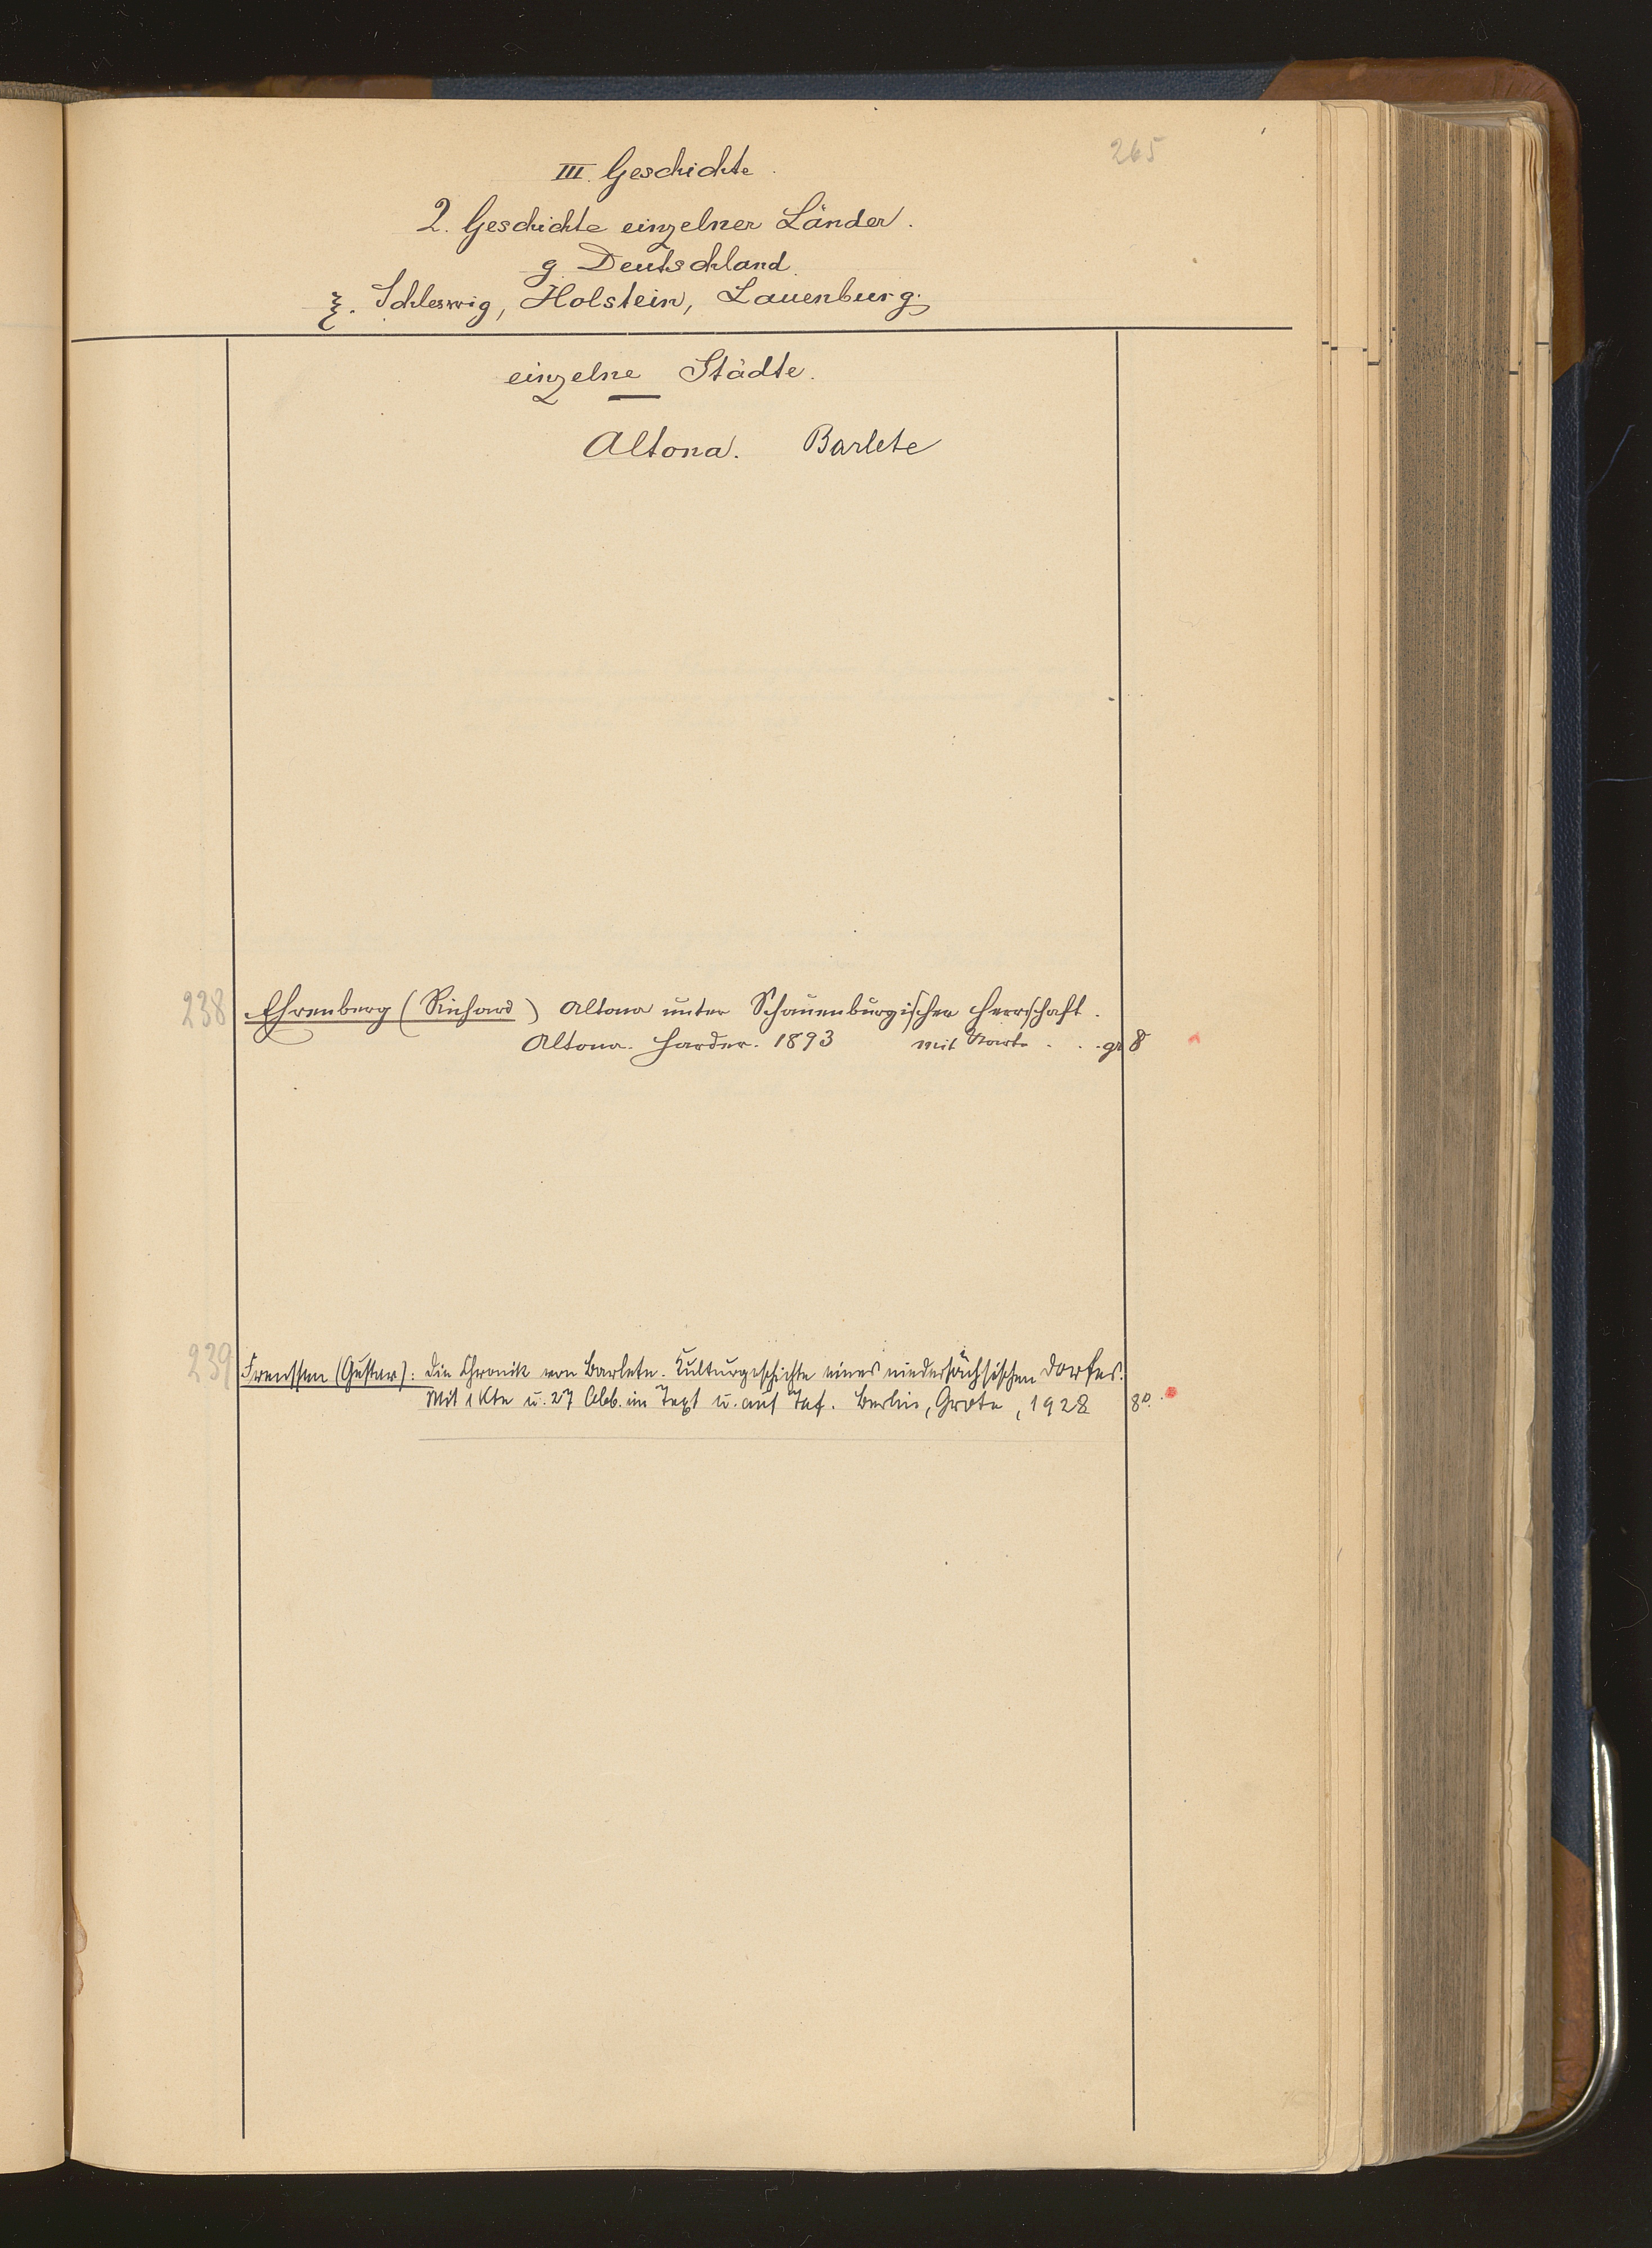 265
III. Geschichte.
2. Geschichte einzelner Länder.
g. Deutschland.
ξ. Schleswig, Holstein, Lauenburg.
einzelne Städte.
Altona. Barlete
238 Ehrenberg (Richard) Altona unter Schauenburgischer Herrschaft.
Altona. Harder. 1893 mit Karte . . . gr 8
239 Frenssen (Gustav): Die Chronik von Barlete. Kulturgeschichte eines niedersächsischen Dorfes.
Mit 1 Kte u. 27 Abb. im Text u. auf Taf. Berlin, Grote, 1928 8°.